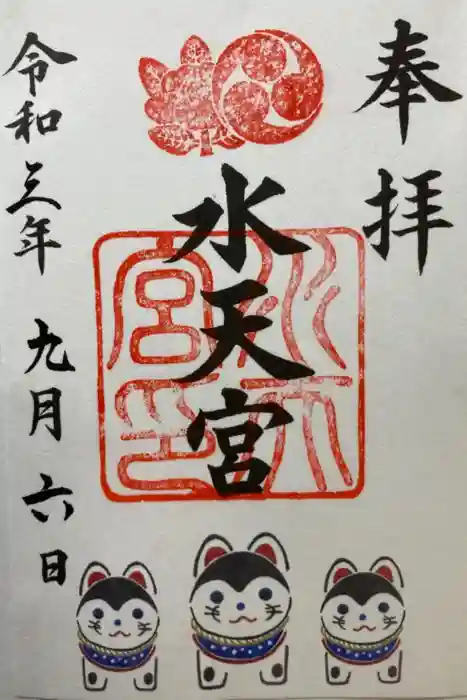 奉拝
水天宮
水天宮印
令和三年九月六日